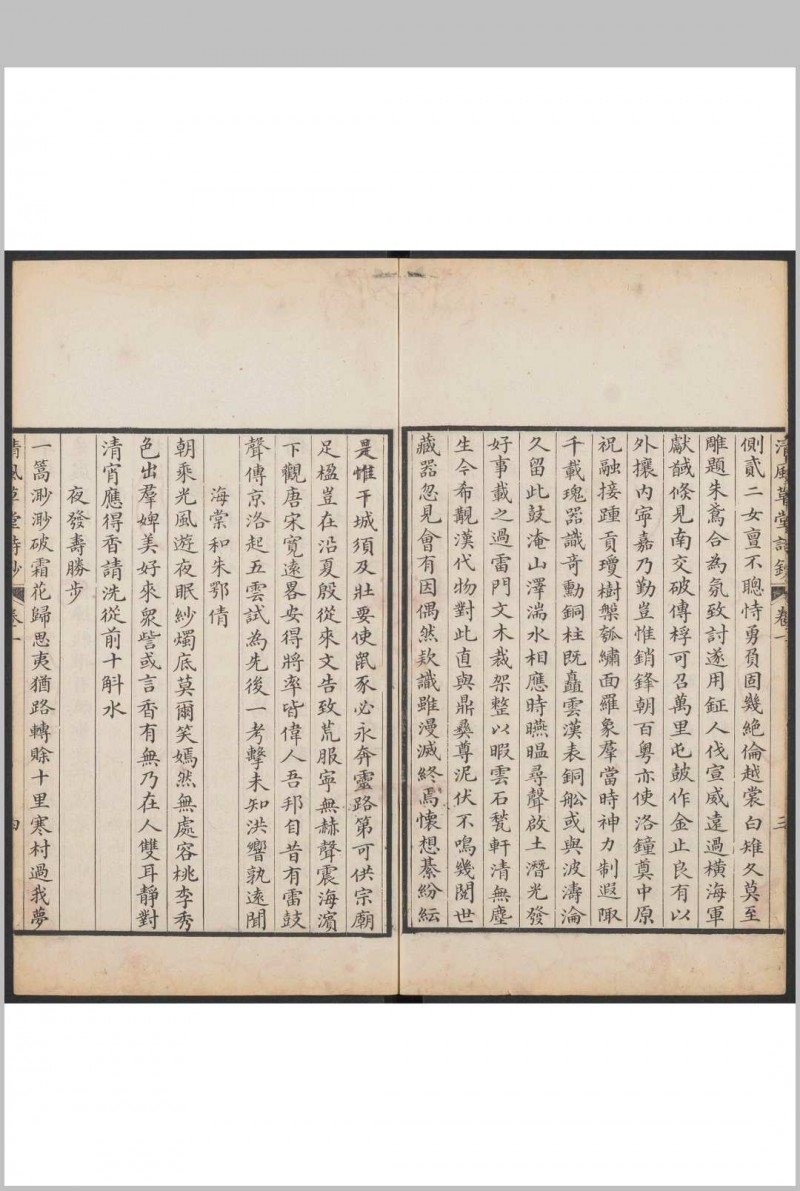 清風草堂詩鈔 卷一 三
側貳二女亶不聰恃勇負固幾絕倫越裳白雉久莫至
雕題朱鳶合為氛致討遂用鉦人伐宣威遠過橫海軍
獻馘倏見南交破傳桴可召萬里屯鼓作金止良有以
外攘內寧嘉乃勤豈惟銷鋒朝百粵亦使洛鐘奠中原
祝融接踵貢瓊樹槃瓠繡面羅象羣當時神力制遐陬
千載瑰器識奇勳銅柱既矗雲漢表銅船或與波濤淪
久留此鼓淹山澤湍水相應時曣㬈尋聲啟土潛光發
好事載之過雷門文木裁架整以暇雲石甃軒清無塵
生今希覯漢代物對此直與鼎彝尊泥伏不鳴幾閱世
藏器忽見會有因偶然欵識雖漫滅終焉懷想綦紛紜
是惟干城須及壯要使鼠豕必永奔靈路第可供宗廟
足楹豈在沿夏殷從來文告致荒服寧無赫聲震海濱
下觀唐宋寬遠畧安得將率皆偉人吾邦自昔有雷鼓
聲傳京洛起五雲試為先後一考擊未知洪響孰遠聞
海棠和朱鄂倩
朝乘光風遊夜眠紗燭底莫爾笑嫣然無處容桃李秀
色出羣婢美好來衆訾或言香有無乃在人雙耳靜對
清宵應得香請洗從前十斛水
夜發壽勝步
一篙渺渺破霜花歸思夷猶路轉賒十里寒村過我夢
清風草堂詩鈔 卷一 四